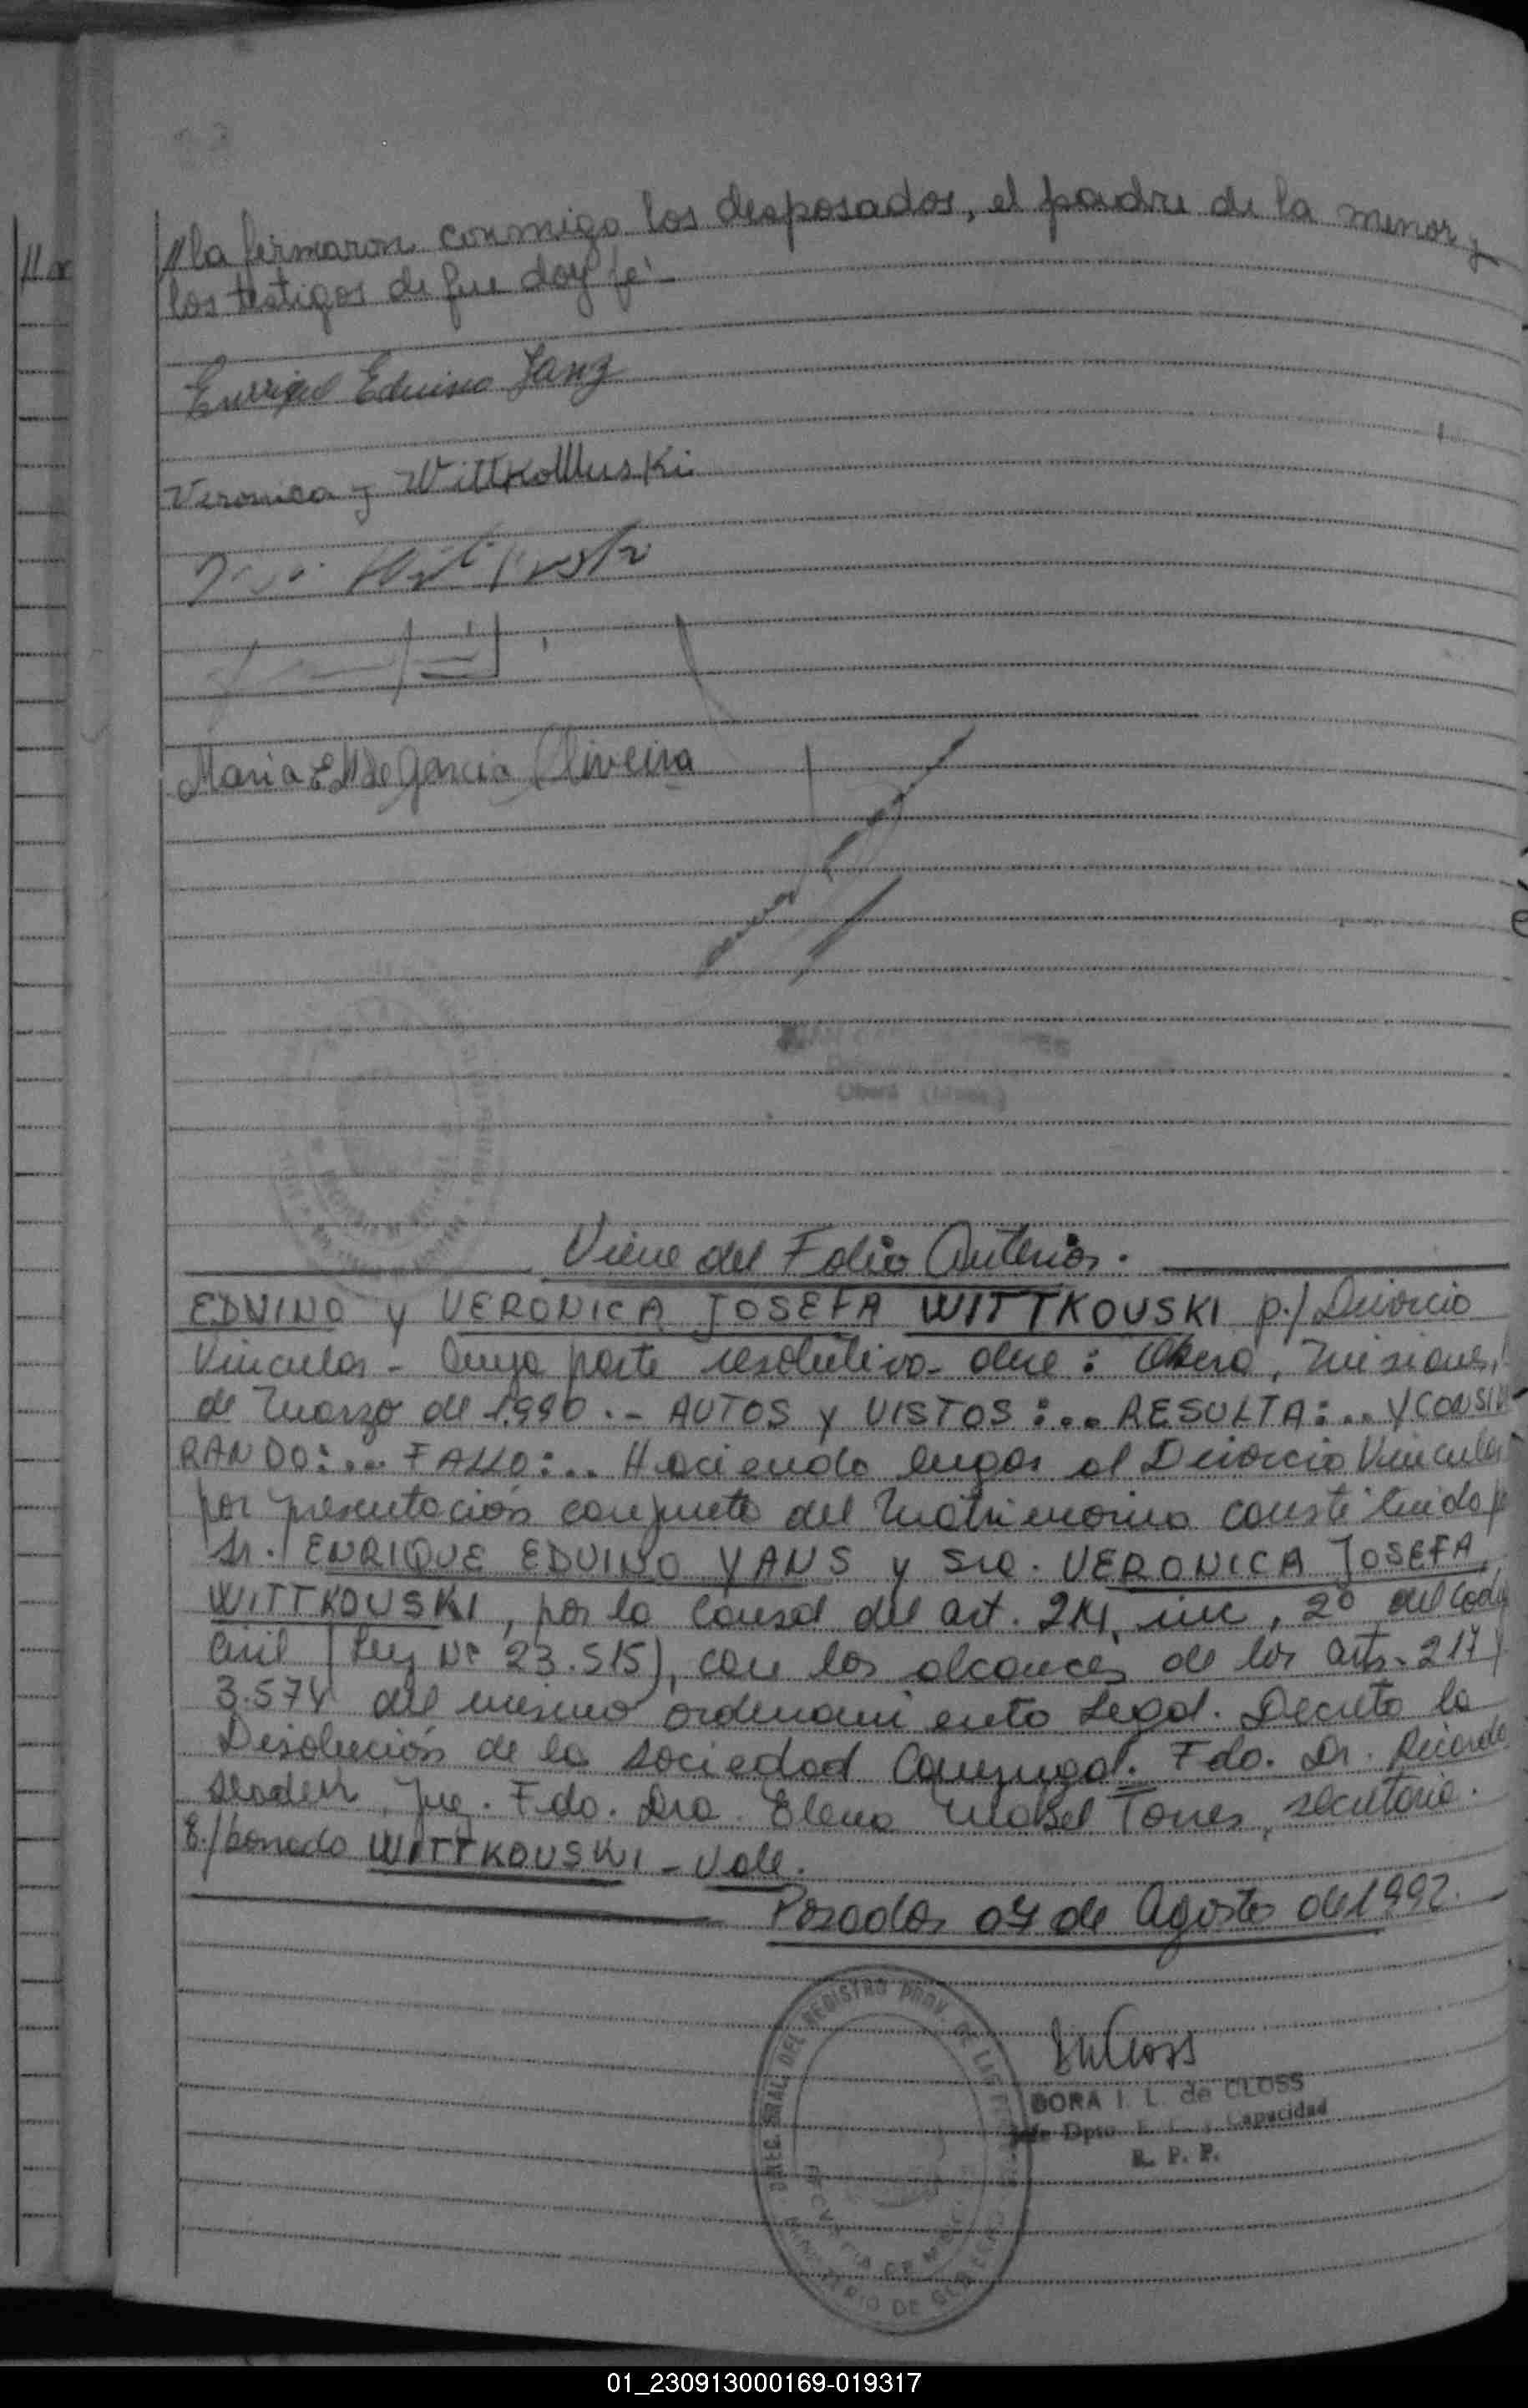 //la firmaron conmigo los desposados, el padre de la menor y
los testigos de que doy fé.-
Enrique Edvino Janz
Veronica J Wittkowuski
Maria E M de Garcia Oliveira
Oberá (Mnes.)
Viene del Folio Anterior.
EDVINO y VERONICA JOSEFA WITTKOVSKI p./ Divorcio
Vincular - Cuya parte resolutiva dice: Oberá, Misiones,
de Marzo de 1.990.- AUTOS y VISTOS:... RESULTA:.. Y CONSIDE
RANDO:... FALLO:.. Haciendo lugar al Divorcio Vincular
por presentación conjunta del Matrimonio constituido p
Sr. ENRIQUE EDVINO YANS y Sra. VERONICA JOSEFA
WITTKOUSKI, por la Causal del art. 214, inc, 2º del Codig
Civil (Ley Nº 23.515), con los alcances de los arts. 217 y
3.574 del mismo ordenamiento Legal. Decreto la
Disolución de la Sociedad Conyugal. Fdo. Dr. Ricardo
Juez. Fdo. Dra. Elena Mabel Torres, secretaria.
E./borrado WITTKOUSKI - Vale.
Posadas 07 de Agosto de 1992.
DREC. GRAL. DEL REGISTRO PROV. DE LAS
MINISTERIO DE
DORA I. L. de CLOSS
Jefe Dpto. E. C. y Capacidad
R. P. P.
01_230913000169-019317